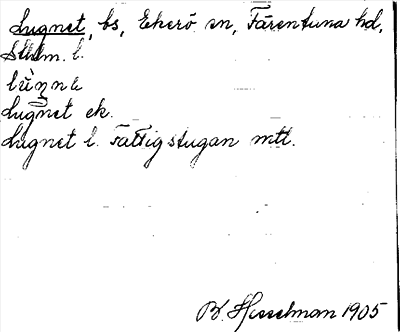 Lugnet, bs, Ekerö sn, Färentuna hd,
Sthlm. l.
Lugnet ek.
Lugnet l. Fattigstugan mtl.
B. Hesselman 1905